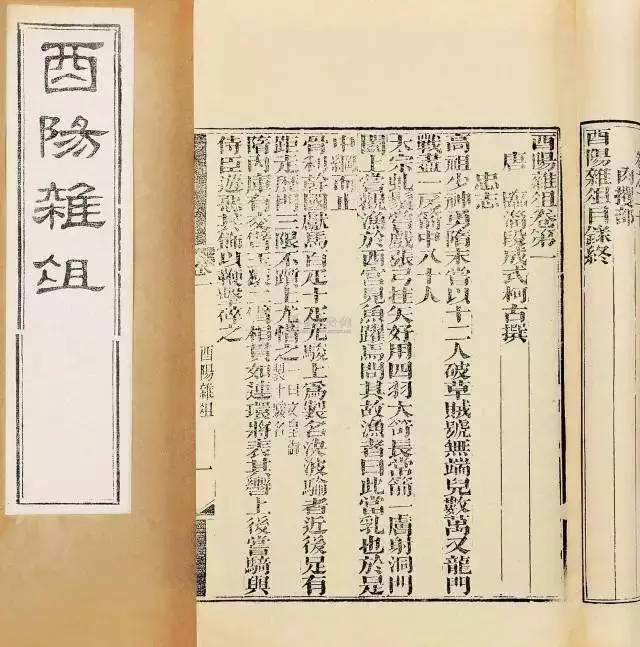 酉陽雜俎
肉攫部
酉陽雜俎目錄終
酉陽雜俎卷第一
唐 臨淄段成式柯古撰
忠志
高祖少神勇隋末嘗以十二人破草賊號無端兒數萬又龍門
戰盡一房箭中八十人
太宗虬髯嘗戲張弓挂矢好用四羽大笴長常箭一膚射洞門
闔上嘗觀漁於西宮見魚躍焉問其故漁者曰此當乳也於是
中網而止
骨利幹國獻馬百疋十疋尤駿上爲製名決波騟者近後足有
距走歷門三限不躓上尤惜之
隋內庫有交臂玉猿二臂相貫如連環將表其轡上後嘗騎與
侍臣遊惡其飾以鞭擊碎之
酉陽雜俎
一